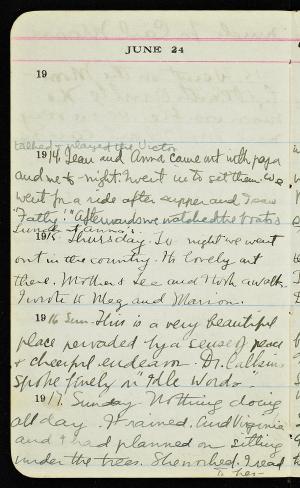 JUNE 24
19
talked & played the Victor
1914 Jean and Anna came out with papa
and me to-night. went in to set them. We
went for a ride after supper and I saw
"Fatty." Afterward we watched the boats
Sunday at Anna's.
1915 Thursday. To-night we went
out in the country. It's lovely out
there. Mother, Lee and took a walk.
I wrote to Meg and Marion.
1916 Sun. This is a very beautiful
place pervaded by a sense of peace
& cheerful endeavor. Dr. Calkins
spoke finely on "Idle Words".
1917. Sunday. Nothing doing
all day. It rained. And Virginia
and I had planned on sitting
under the trees. She worked. I read
to her